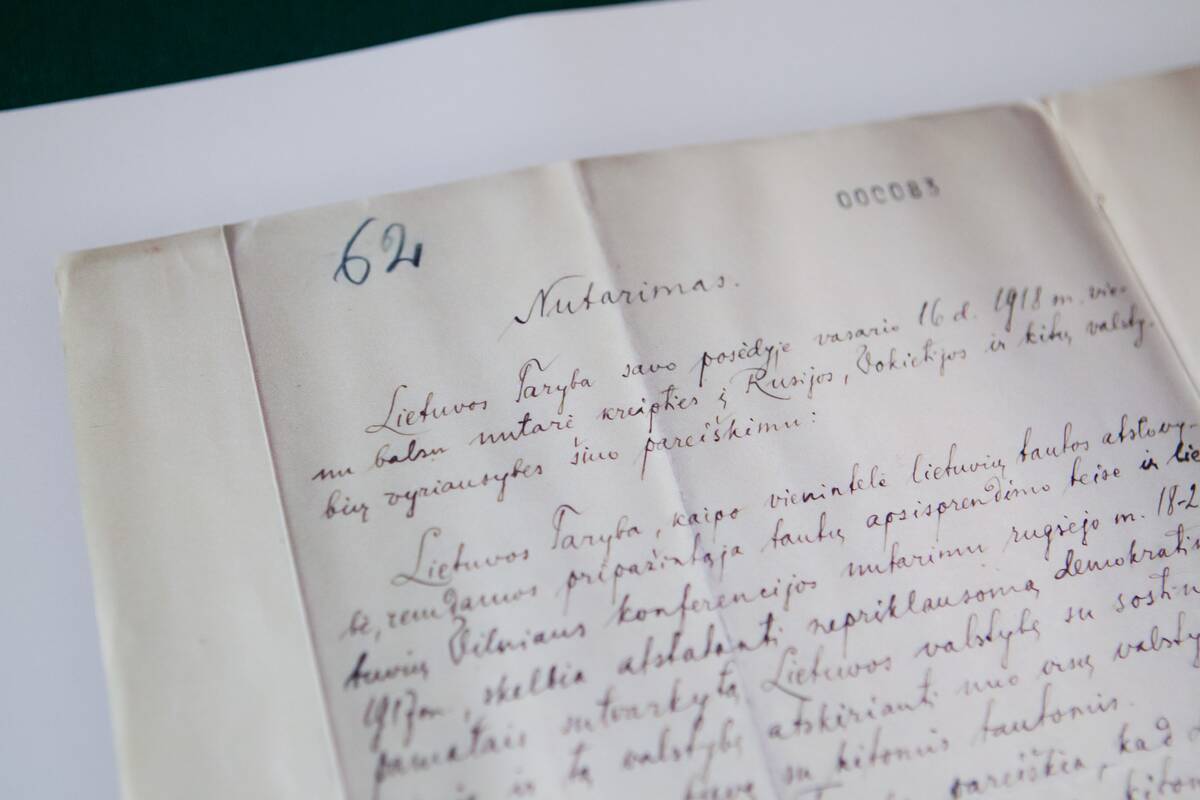 62
000083
Nutarimas.
Lietuvos Taryba savo posėdyje vasario 16 d. 1918 m. vie-
nu balsu nutarė kreipties į Rusijos, Vokietijos ir kitų valsty-
bių vyriausybes šiuo pareiškimu:
Lietuvos Taryba, kaipo vienintelė lietuvių tautos atstovy-
bė, remdamos pripažintąja tautų apsisprendimo teise ir lie
tuvių Vilniaus konferencijos nutarimu rugsėjo m. 18-2
1917 m, skelbia atstatanti nepriklausomą demokratin
pamatais sutvarkytą Lietuvos valstybę su sostin
ir tą valstybę atskirianti nuo visų valsty
su kitomis tautomis.
pareiškia, kad
kitom